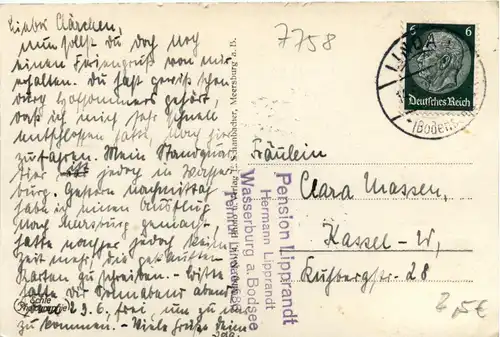 Liebes Clärchen,
nun sollst du doch noch
einen Feriengruß von mir
erhalten. Du hast gewiß schon
gehört,
daß ich mich sehr schnell
entschlossen habe, noch
zu fahren. Mein Standquar-
tier ist jedoch in Wasser-
burg. Gestern nachmittag
habe ich einen Ausflug
nach Meersburg gemacht,
hatte nachher jedoch keine
Zeit mehr die gekauften
Karten zu schreiben. – Bitte
halte dir Sonnabend abend
29.6. frei, um zu mir
zu kommen. – Viele Grüße Deine
7758
6 6
Deutsches Reich
LINDAU
(Bodensee)
Verlag E. Schanbacher, Meersburg a. B.
Echte Photographie
Pension Lipprandt
Hermann Lipprandt
Wasserburg a. Bodsee
Fräulein
Clara Massen,
Kassel-W,
28
2,5€